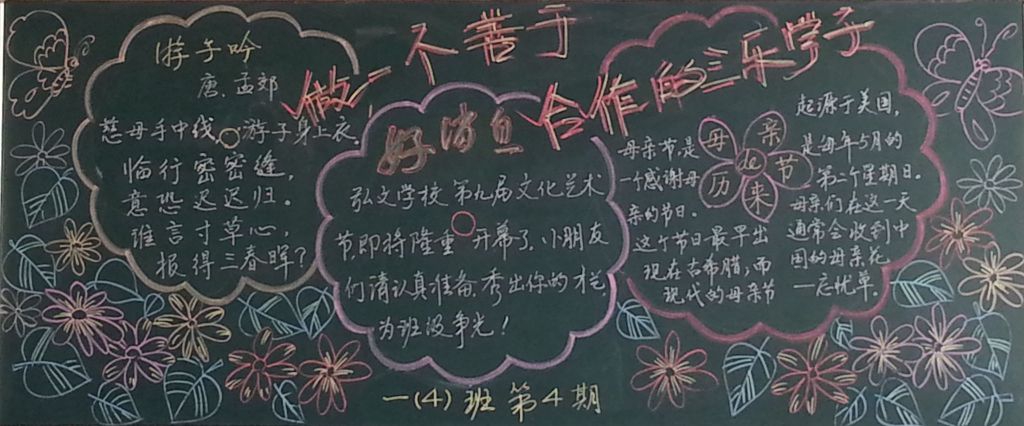 做一不善于
合作的三乐学子
游子吟
唐.孟郊
慈母手中线,游子身上衣.
临行密密缝,
意恐迟迟归。
谁言寸草心,
报得三春晖?
好消息
弘文学校第九届文化艺术
节即将隆重开幕了,小朋友
们请认真准备,秀出你的才艺,
为班级争光!
母亲节
历来
母亲节是
一个感谢母
亲的节日。
这个节日最早出
现在古希腊,而
现代的母亲节
起源于美国,
是每年5月的
第二个星期日。
母亲们在这一天
通常会收到
国的母亲花
忘忧草。
一(4)班第4期